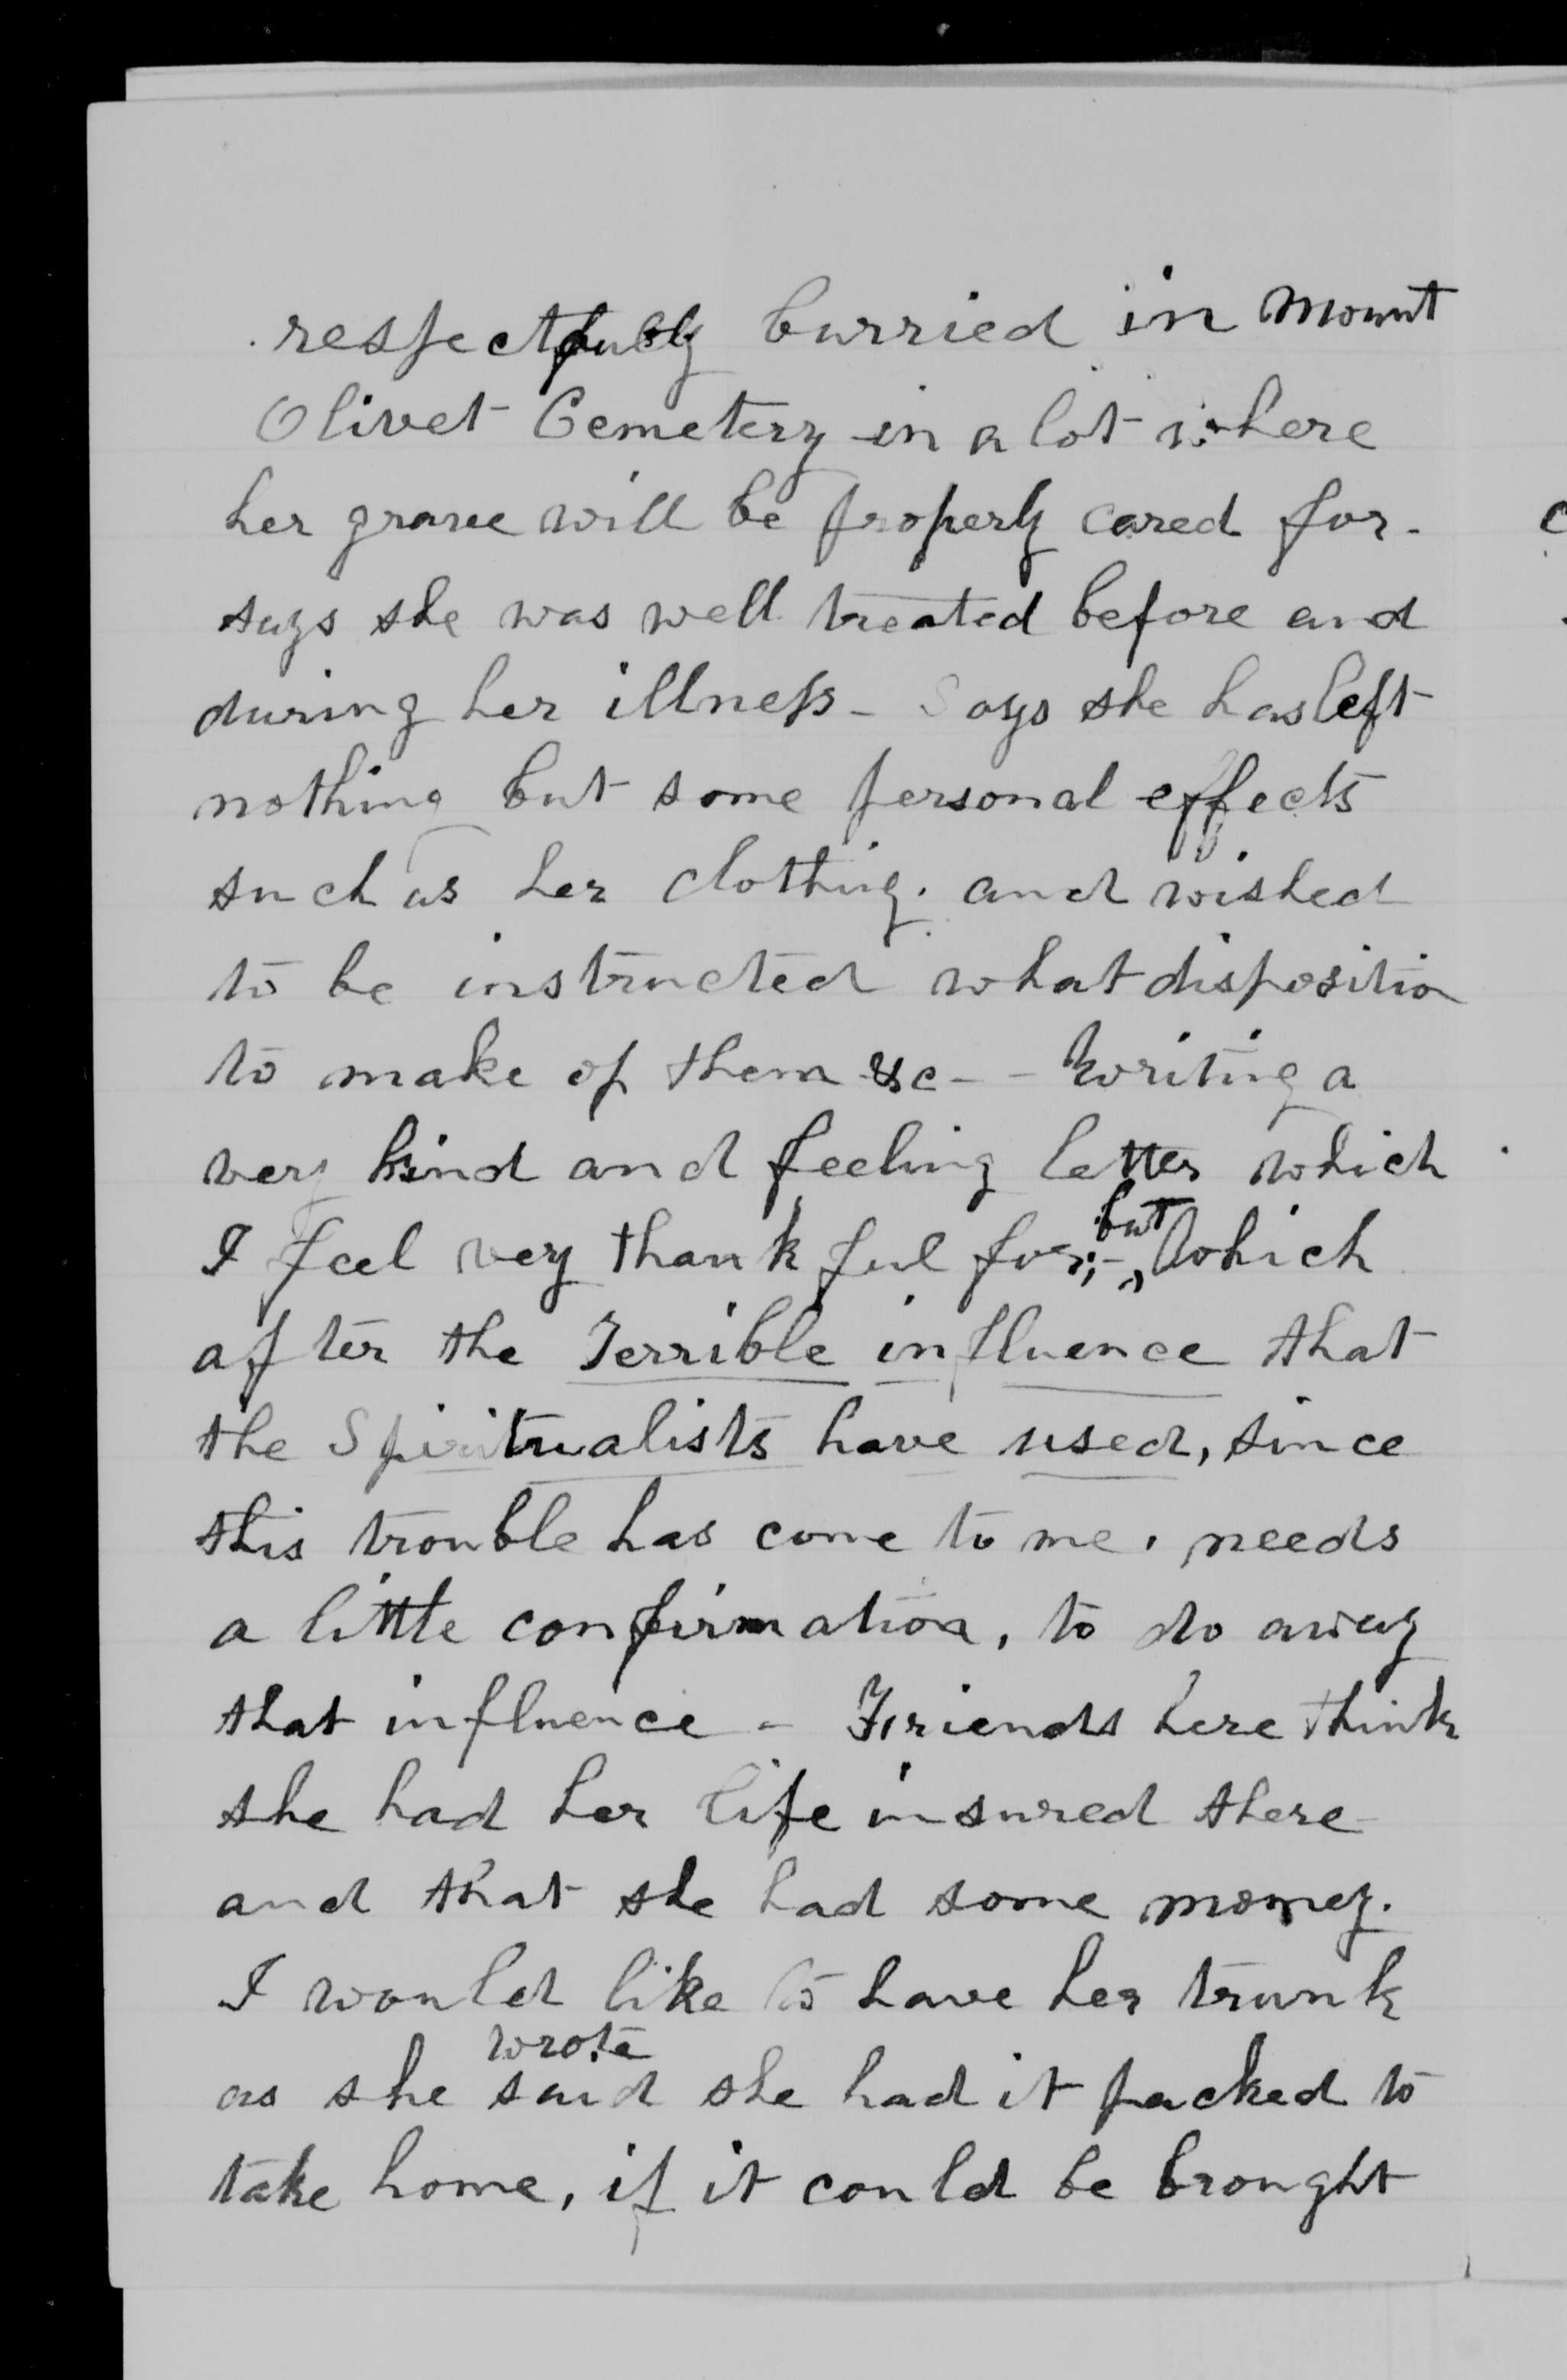 respectfully burried in Mount
Olivet Cemetery in a lot where
her grave will be properly cared for -
says she was well treated before and
during her illness - Says she has left
nothing but some personal effects
such as her clothing. and wished
to be instructed what disposition
to make of them &c - - Writing a
very kind and feeling letter which
I feel very thankful for; - but which
after the Terrible influence that
the Spiritualists have used, since
this trouble has come to me, needs
a little confirmation, to do away
that influence - Friends here think
she had her life insured there
and that she had some money.
I would like to have her trunk
wrote
as she said she had it packed to
take home, if it could be brought